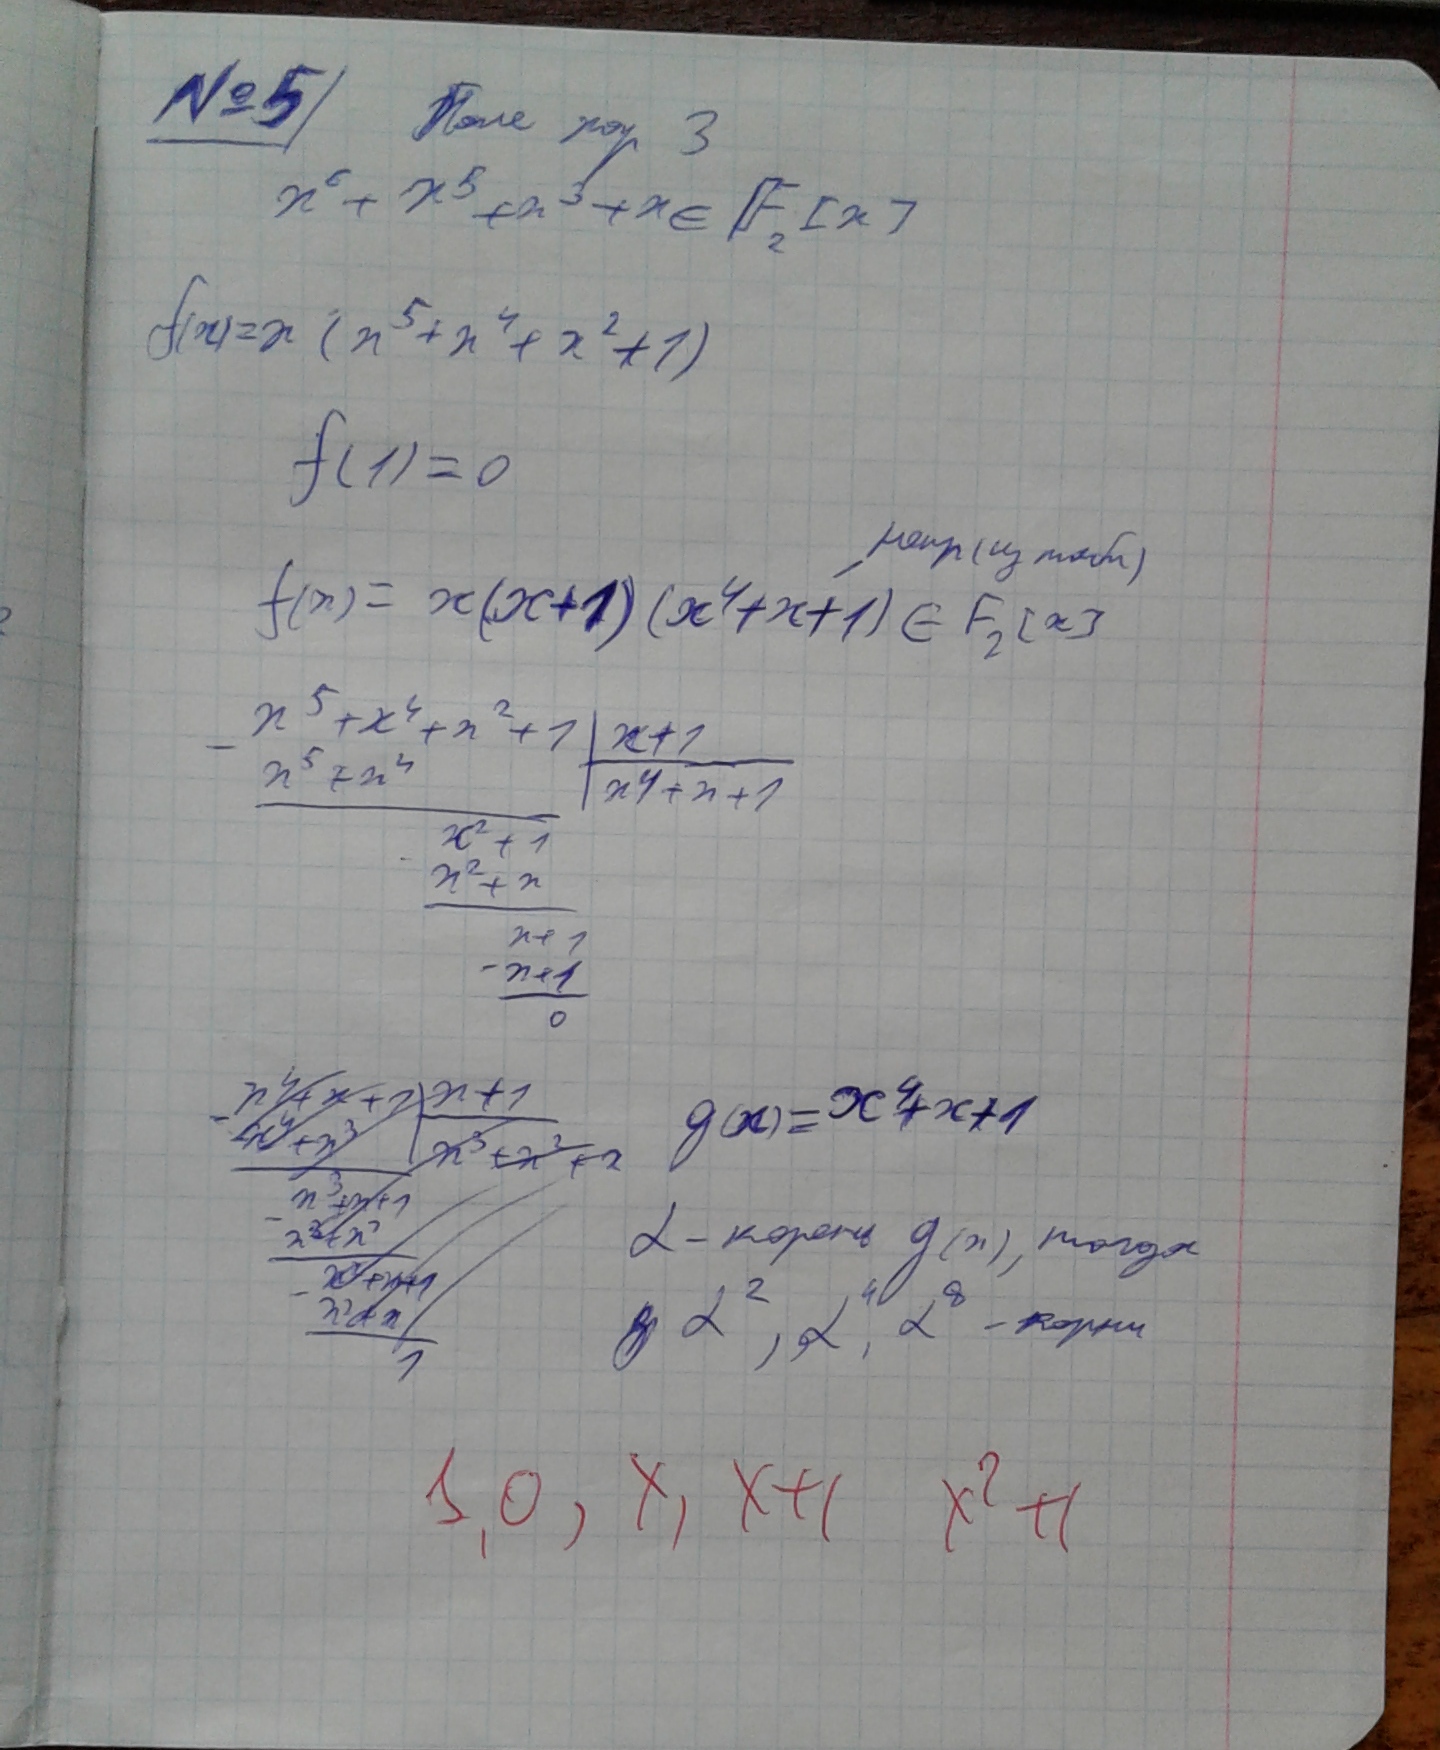 №5
Поле раз 3
x⁶ + x⁵ + x³ + x ∈ F₂[x]
f(x)=x(x⁵+x⁴+x²+1)
f(1)=0
непр(из табл)
f(x)= x(x+1)(x⁴+x+1) ∈ F₂[x]
- x⁵+x⁴+x²+1 | x+1
x⁵+x⁴ | x⁴+x+1
x²+1
x²+x
x+1
-x+1
0
- x⁴+x+1 | x+1
x⁴+x³ | x³+x²+x
- x³+x+1
x³+x²
- x²+x+1
x²+x
1
g(x)=x⁴+x+1
α-корень g(x), тогда
α², α⁴, α⁸ - корни
1, 0, x, x+1 x²+1